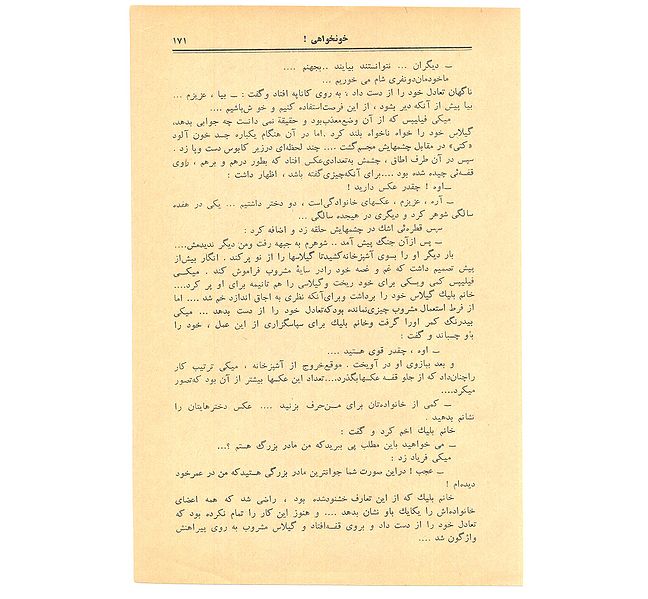 خونخواهی !
۱۷۱
ــ دیگران ... نتوانستند بیایند ..بجهنم ....
ماخودمان‌دونفری شام می خوریم ...
ناگهان تعادل خود را از دست داد ؛ به روی کاناپه افتاد وگفت : ــ بیا ، عزیزم ...
بیا پیش از آنکه دیر بشود ، از این فرصت‌استفاده کنیم و خو ش‌باشیم ....
میکی فیلیپس که از آن وضع‌معذب‌بود و حقیقة نمی دانست چه جوابی بدهد،
گیلاس خود را خواه ناخواه بلند کرد .اما در آن هنگام یکباره جسد خون آلود
«کتی» در مقابل چشمهایش مجسم‌گشت .... چند لحظه‌ای درزیر کابوس دست وپا زد .
سپس در آن طرف اطاق ، چشمش به‌تعدادی‌عکس افتاد که بطور درهم و برهم ، بر‌وی
قفسه‌ئی چیده شده بود ....برای آنکه‌چیزی‌گفته باشد ، اظهار داشت :
ــ‌اوه ! چقدر عکس دارید !
ــ آره ، عزیزم ، عکسهای خانوادگی‌است ، دو دختر داشتیم ... یکی در هفده
سالگی شوهر کرد و دیگری در هیجده سالگی ...
سپس قطره‌ئی اشك در چشمهایش حلقه زد و اضافه کرد :
ــ پس ازآن جنگ پیش آمد .. شوهرم به جبهه رفت ومن دیگر ندیدمش....
بار دیگر او را بسوی آشپزخانه‌کشیدتا گیلاسها را از نو پرکند . انگار بیش‌از
پیش تصمیم داشت که غم و غصه خود رادر سایهٔ مشروب فراموش کند . میکـی
فیلیپس کمی ویسکی برای خود ریخت وگیلاسی را هم تانیمه برای او پر کرد....
خانم بلیك گیلاس خود را برداشت وبرای‌آنکه نظری به اجاق اندازد خم شد .... اما
از فرط استعمال مشروب چیزی‌نمانده بودکه‌تعادل خود را از دست بدهد ... میکی
بیدرنگ کمر اورا گرفت وخانم بلیك برای سپاسگزاری از این عمل ، خود را
باو چسباند و گفت :
ــ اوه ، چقدر قوی هستید ....
و بعد ببازوی او در آویخت . موقع‌خروج از آشپزخانه ، میکی ترتیب کار
راچنان‌داد که از جلو قفسه عکسهابگذرد....تعداد این عکسها بیشتر از آن بود که‌تصور
میکرد....
ــ کمی از خانواده‌تان برای مــن‌حرف بزنید .... عکس دخترهایتان را
نشانم بدهید .
خانم بلیك اخم کرد و گفت :
ــ می خواهید باین مطلب پی ببریدکه من مادر بزرگ هستم ؟...
میکی فریاد زد :
ــ عجب ! دراین صورت شما جوانترین مادر بزرگی هستیدکه من در عمرخود
دیده‌ام !
خانم بلیك که از این تعارف خشنودشده بود ، راضی شد که همه اعضای
خانواده‌اش را یکایك باو نشان بدهد .... و هنوز این کار را تمام نکرده بود که
تعادل خود را از دست داد و بروی قفسه‌افتاد و گیلاس مشروب به روی پیراهنش
واژگون شد ....